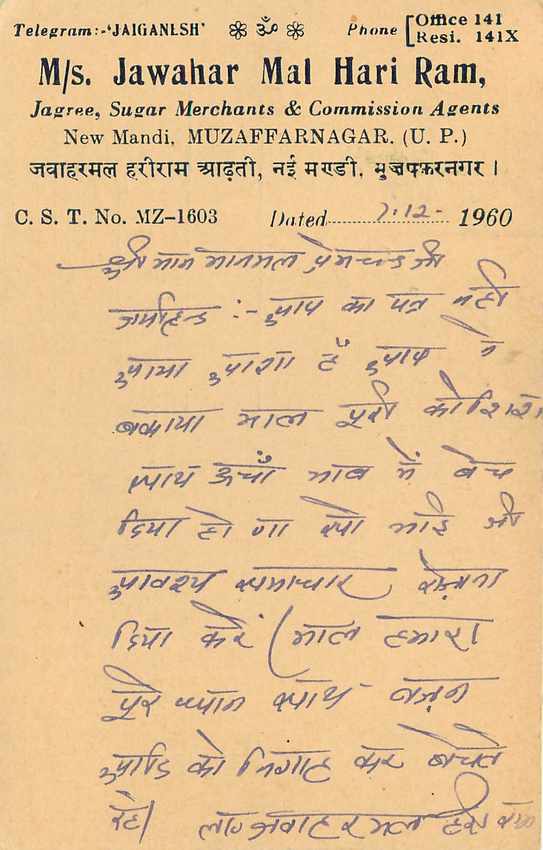 Telegram:-'JAIGANESH' ॐ Phone Office 141
Resi. 141X
M/s. Jawahar Mal Hari Ram,
Jagree, Sugar Merchants & Commission Agents
New Mandi, MUZAFFARNAGAR. (U. P.)
जवाहरमल हरीराम आढ़ती, नई मण्डी, मुजफ्फरनगर ।
C. S. T. No. MZ-1603 Dated 7.12- 1960
श्री मान मानमल प्रेमचन्द जी
जयहिन्द :- आप का पत्र नही
आया आशा हैं आप ने
बकाया माल पूरी कोशिश
साथ ऊचाँ भाव में बेच
दिया हो गा सो भाई जी
आवश्य समाचार रोज़ाना
दिया करें माल हमारा
पूरे ध्यान साथ वज़न
आदि को निगाह कर बेचते
रहे। जवाहरमल हरी राम